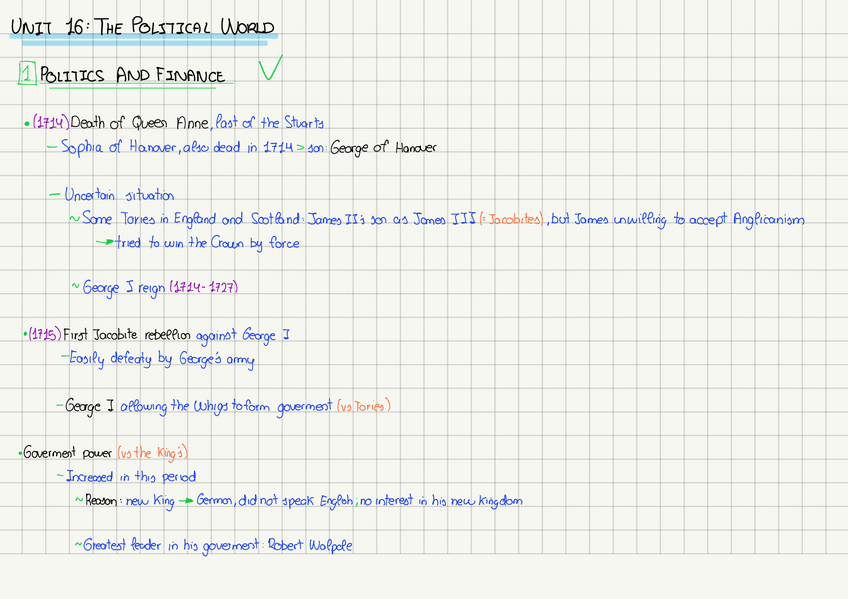 UNIT 16: THE POLITICAL WORLD
1 POLITICS AND FINANCE
• (1714) Death of Queen Anne, last of the Stuarts
– Sophia of Hanover, also dead in 1714 > son: George of Hanover
– Uncertain situation
~ Some Tories in England and Scotland: James II's son as James III (= Jacobites), but James unwilling to accept Anglicanism
→ tried to win the Crown by force
~ George I reign (1714-1727)
• (1715) First Jacobite rebellion against George I
– Easily defeaty by George's army
– George I allowing the Whigs to form goverment (vs Tories)
• Goverment power (vs the King's)
– Increased in this period
~ Reason: new King → German, did not speak English; no interest in his new kingdom
~ Greatest leader in his goverment: Robert Walpole